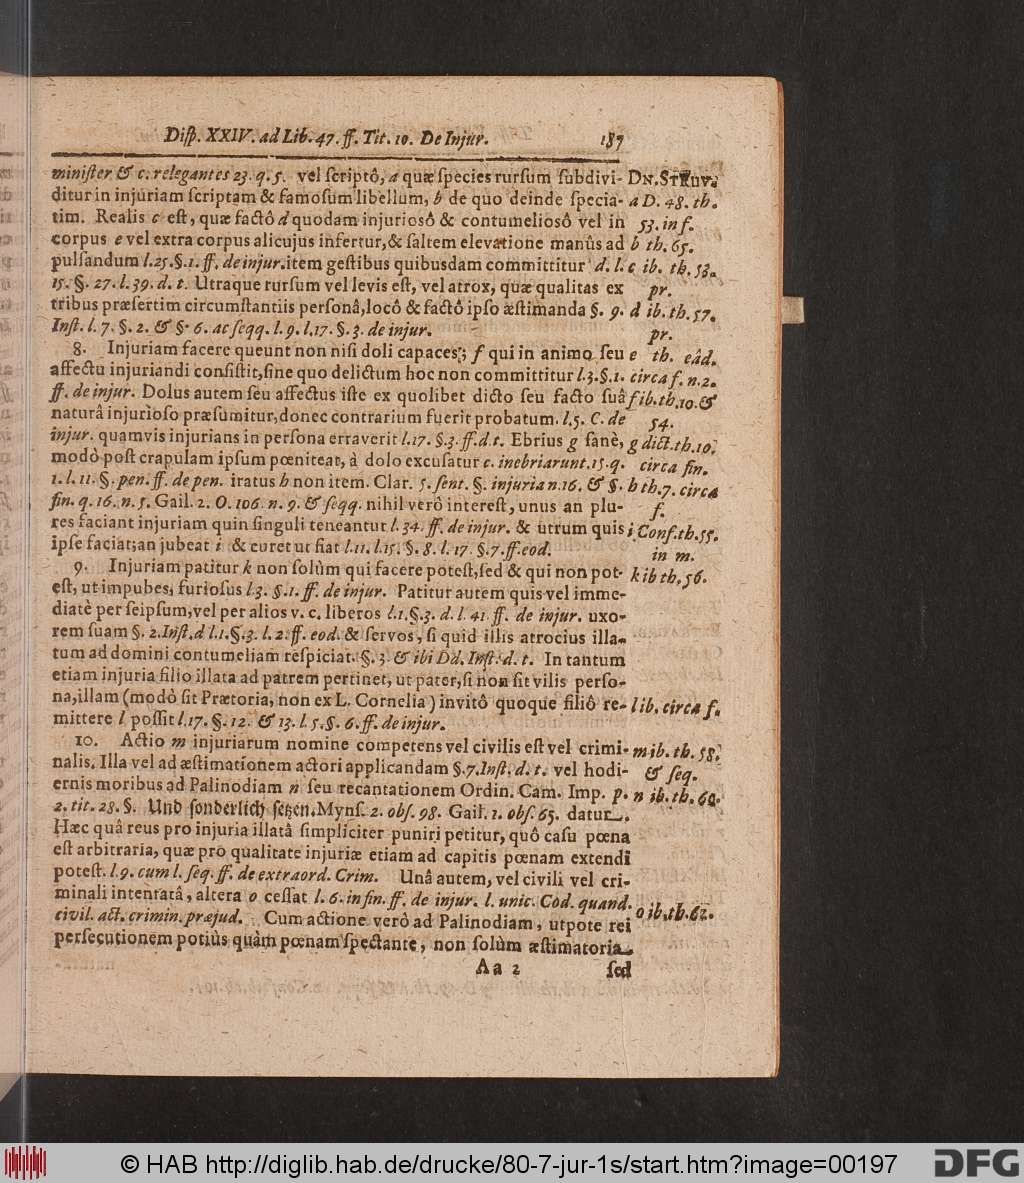 Diſp. XXIV. ad Lib. 47. ff. Tit. 10. De Injur. 187
miniſter & c. relegantes 23. q. 5. vel ſcriptô, a quæ ſpecies rurſum ſubdivi-
ditur in injuriam ſcriptam & famoſum libellum, b de quo deinde ſpecia-
tim. Realis c eſt, quæ factô d quodam injurioſô & contumelioſô vel in
corpus e vel extra corpus alicujus infertur,& ſaltem elevatione manûs ad
pulſandum l.25.§.1. ff. de injur.item geſtibus quibusdam committitur d. l.
15. §. 27. l. 39. d. t. Utraque rurſum vel levis eſt, vel atrox, quæ qualitas ex
tribus præſertim circumſtantiis perſonâ,locô & factô ipſo æſtimanda §. 9.
Inſt. l. 7. §. 2. & §. 6. ac ſeqq. l. 9. l.17. §. 3. de injur.
8. Injuriam facere queunt non niſi doli capaces; f qui in animo ſeu
affectu injuriandi conſiſtit,ſine quo delictum hoc non committitur l.3.§.1.
ff. de injur. Dolus autem ſeu affectus iſte ex quolibet dicto ſeu facto ſuâ
naturâ injurioſo præſumitur,donec contrarium fuerit probatum. l.5. C. de
injur. quamvis injurians in perſona erraverit l.17. §.3. ff.d.t. Ebrius g ſanè,
modò poſt crapulam ipſum pœniteat, à dolo excuſatur c. inebriarunt.15.q.
1. l. 11. §. pen. ff. de pen. iratus h non item. Clar. 5. ſent. §. injuria n.16. & §.
fin. q. 16. n. 5. Gail. 2. O. 106. n. 9. & ſeqq. nihil verò intereſt, unus an plu-
res faciant injuriam quin ſinguli teneantur l. 34. ff. de injur. & utrum quis
ipſe faciat;an jubeat i & curet ut fiat l.11. l.15. §. 8. l. 17. §.7.ff.eod.
9. Injuriam patitur k non ſolùm qui facere poteſt,ſed & qui non pot-
eſt, ut impubes, furioſus l.3. §.1. ff. de injur. Patitur autem quis vel imme-
diatè per ſeipſum,vel per alios v. c. liberos l.1.§.3. d. l. 41. ff. de injur. uxo-
rem ſuam §. 2.Inſt.d l.1.§.3. l. 2. ff. eod. & ſervos, ſi quid illis atrocius illa-
tum ad domini contumeliam reſpiciat. §. 3. & ibi Dd. Inſt. d. t. In tantum
etiam injuria filio illata ad patrem pertinet, ut pater,ſi non ſit vilis perſo-
na,illam (modò ſit Prætoria, non ex L. Cornelia) invitô quoque filiô re-
mittere l poſſit l.17. §. 12. & 13. l. 5.§. 6. ff. de injur.
10. Actio m injuriarum nomine competens vel civilis eſt vel crimi-
nalis. Illa vel ad æſtimationem actori applicandam §.7.Inſt. d. t. vel hodi-
ernis moribus ad Palinodiam n ſeu recantationem Ordin. Cam. Imp. p.
2. tit. 28. §. Und ſonderlich ſetzen. Mynſ. 2. obſ. 98. Gail. 1. obſ. 65. datur.
Hæc quâ reus pro injuria illatâ ſimpliciter puniri petitur, quô caſu pœna
eſt arbitraria, quæ pro qualitate injuriæ etiam ad capitis pœnam extendi
poteſt. l.9. cum l. ſeq. ff. de extraord. Crim. Unâ autem, vel civili vel cri-
minali intentatâ, altera o ceſſat l. 6. in fin. ff. de injur. l. unic. Cod. quand.
civil. act. crimin. præjud. Cum actione verò ad Palinodiam, utpote rei
perſecutionem potiùs quàm pœnam ſpectante, non ſolùm æſtimatoria
Aa 2 ſed
DN. STRUV.
a D. 48. th.
53. inf.
b th. 65.
c ib. th. 53.
pr.
d ib. th. 57.
pr.
e th. eâd.
circa f. n. 2.
f ib. th. 10. &
54.
g dict. th. 10.
circa fin.
h th. 7. circa
f.
i Conf. th. 55.
in m.
k ib th. 56.
l ib. circa f.
m ib. th. 58.
& ſeq.
n ib. th. 60.
o ib. th. 62.
© HAB http://diglib.hab.de/drucke/80-7-jur-1s/start.htm?image=00197
DFG